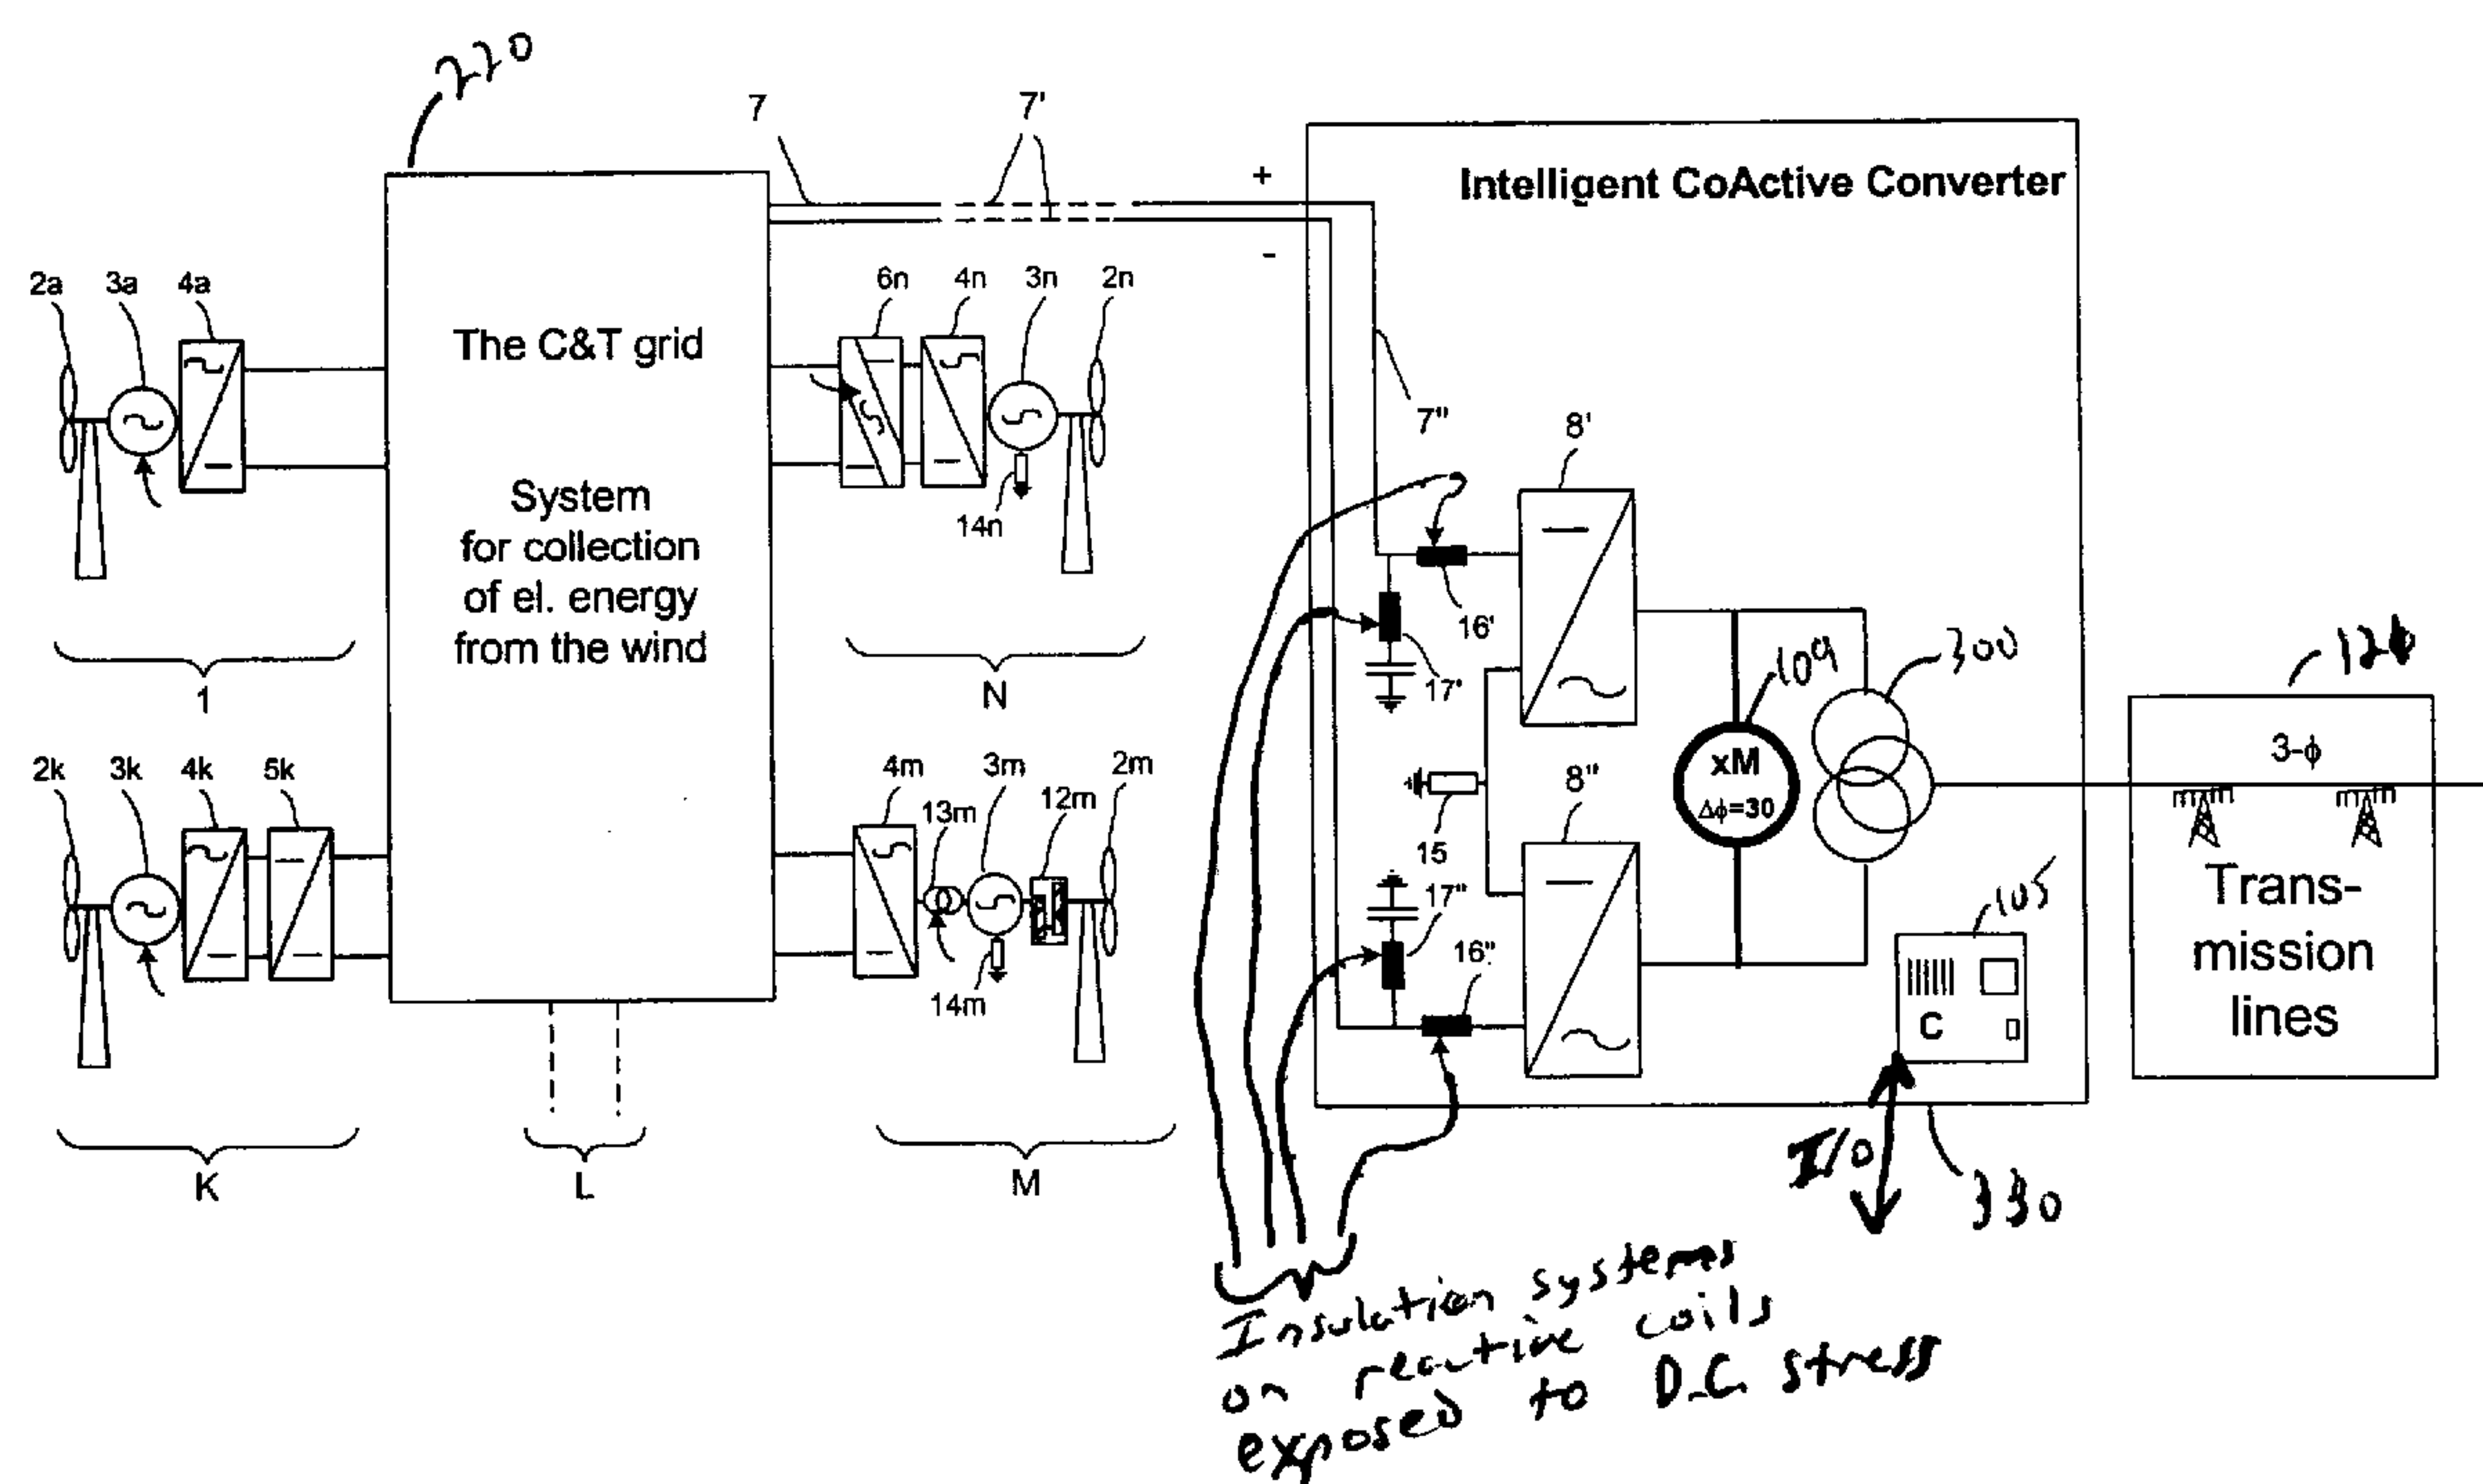 220
7
7'
+
-
Intelligent CoActive Converter
2a
3a
4a
The C&T grid
System
for collection
of el. energy
from the wind
6n
4n
3n
2n
14n
7"
8'
16'
17'
109
300
1
N
2k
3k
4k
5k
4m
13m
3m
12m
2m
14m
15
8"
17"
16"
xM
Δϕ=30
3-ϕ
Trans-
mission
lines
105
C
K
L
M
I/O
330
Insulation systems
on reactive coils
exposed to D.C. stress